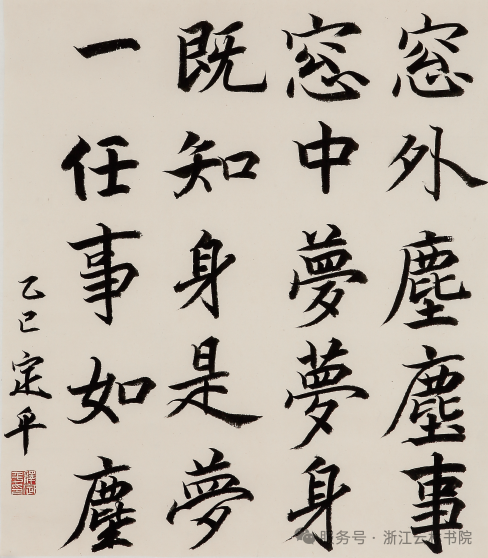 窓外塵塵事
窓中夢夢身
既知身是夢
一任事如塵
乙巳 定平
服务号 · 浙江云林书院